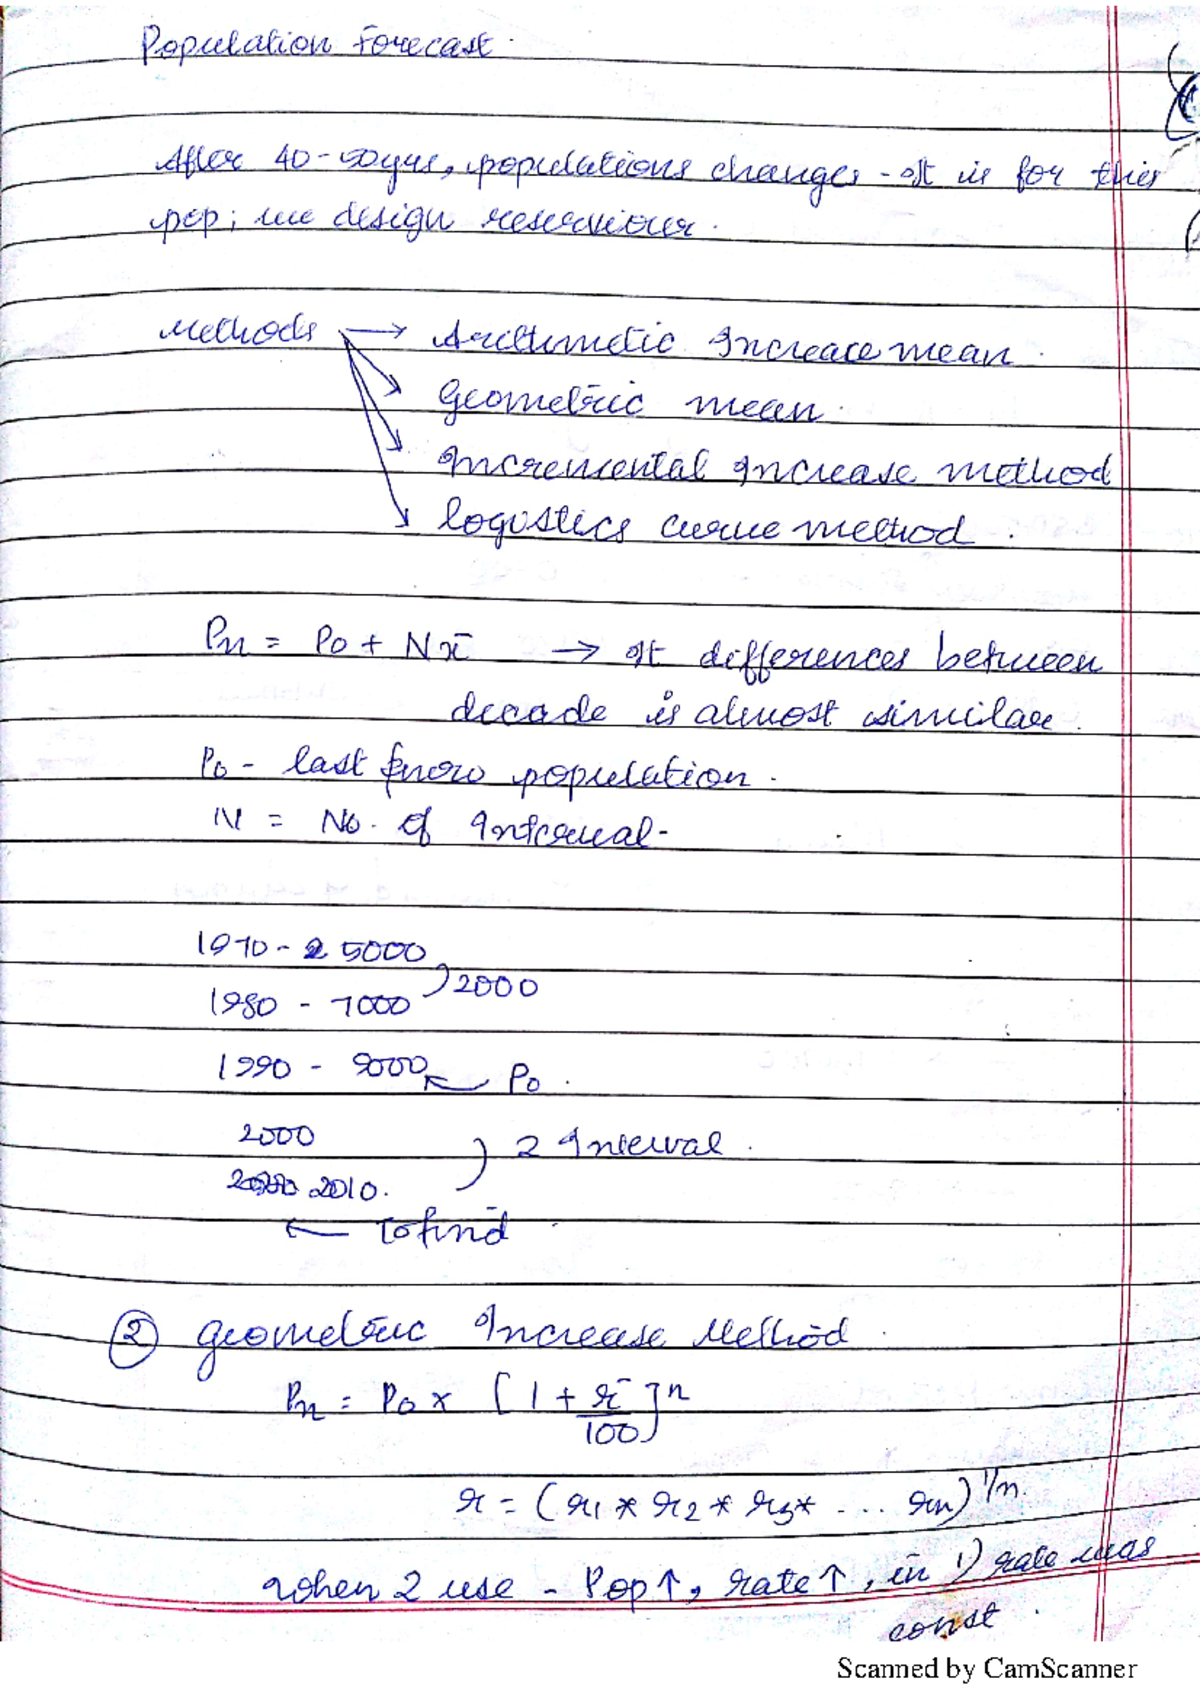 Population Forecast.
After 40-50yrs, populations changes - It is for this
pop; we design reserviour.
Methods → Arithmetic Increase mean.
Geometric mean.
Incremental Increase method
Logistics curve method.
Pn = Po + Nx̄ → If differences between
decade is almost similar.
Po - last know population.
N = No. of Interval-
1970 - 5000
2000
1980 - 7000
1990 - 9000 ← Po.
2000
2 Interval.
2010.
← To find
② Geometric Increase Method.
Pn = Po x [1 + r̄/100]n
r = (r1 * r2 * r3* ... rn)1/n.
when 2 use - Pop↑, rate↑, in 1) rate was
const.
Scanned by CamScanner